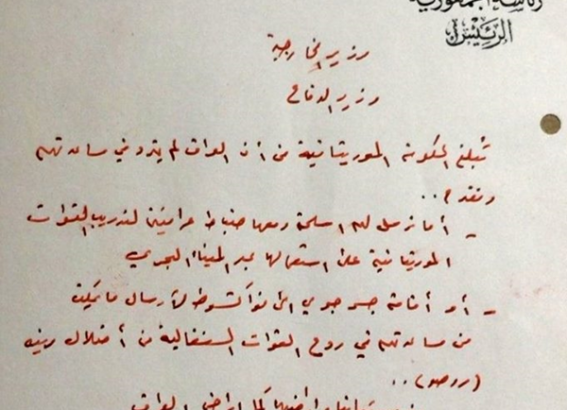 رئاسة الجمهورية
الرئيس
وزير الخارجية
وزير الدفاع
تبلغ الحكومة الموريتانية من أن العراق لم يتردد في مساندتهم
ونقدم ..
- أما نرسل لهم اسلحة ومعها ضباط عراقيين لتدريب القوات
الموريتانية على استعمالها عبر الميناء البحري
- أو أقامة جسر جوي الى نواكشوط لأرسال ما يمكن
من مساندتهم في ردع القوات السنغالية من أحتلال مدينة
(روصو) ..
العراق